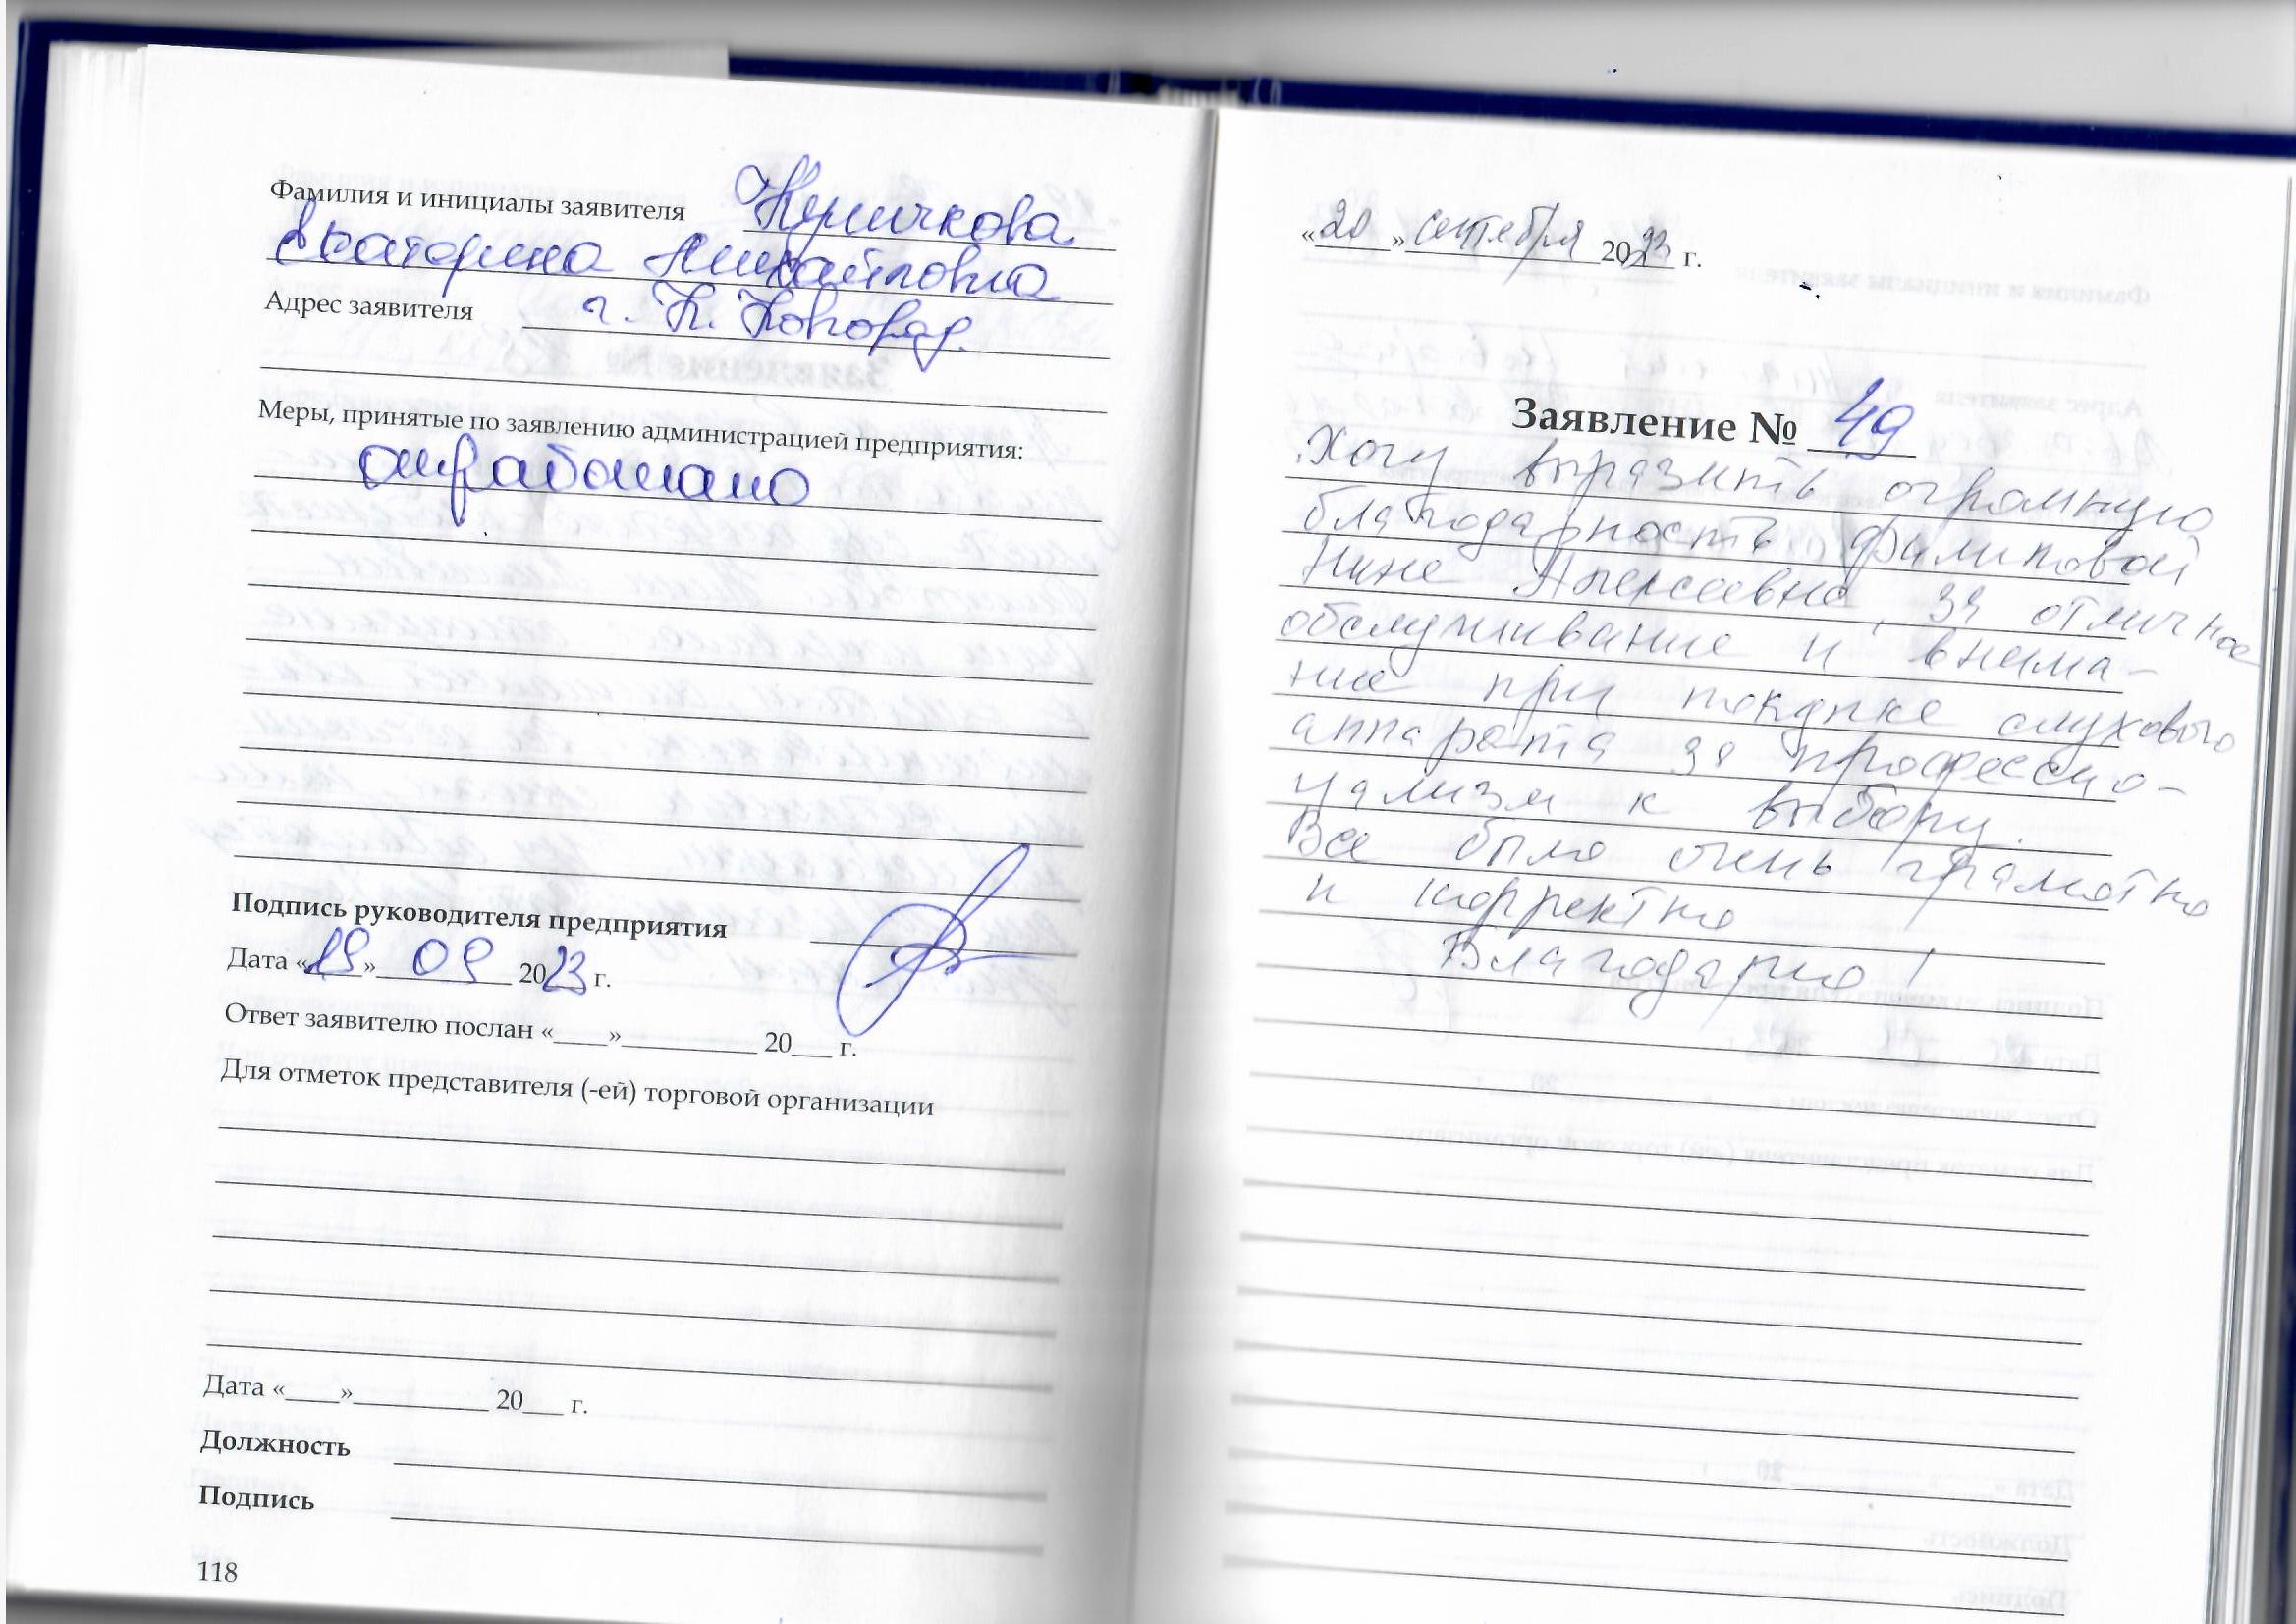 Фамилия и инициалы заявителя
Екатерина Михайловна
Адрес заявителя г. Н. Новгород.
Меры, принятые по заявлению администрацией предприятия:
отработано
Подпись руководителя предприятия
Дата «19» 09 2023 г.
Ответ заявителю послан «____»__________ 20___ г.
Для отметок представителя (-ей) торговой организации
Дата «____»__________ 20___ г.
Должность
Подпись
118
«20» сентября 2023 г.
Заявление № 49
Хочу выразить огромную
благодарность Филиповой
Нине Алексеевне, за отличное
обслуживание и внима-
ние при покупке слухового
аппарата за профессио-
нализм к выбору.
Все было очень грамотно
и корректно
Благодарю!